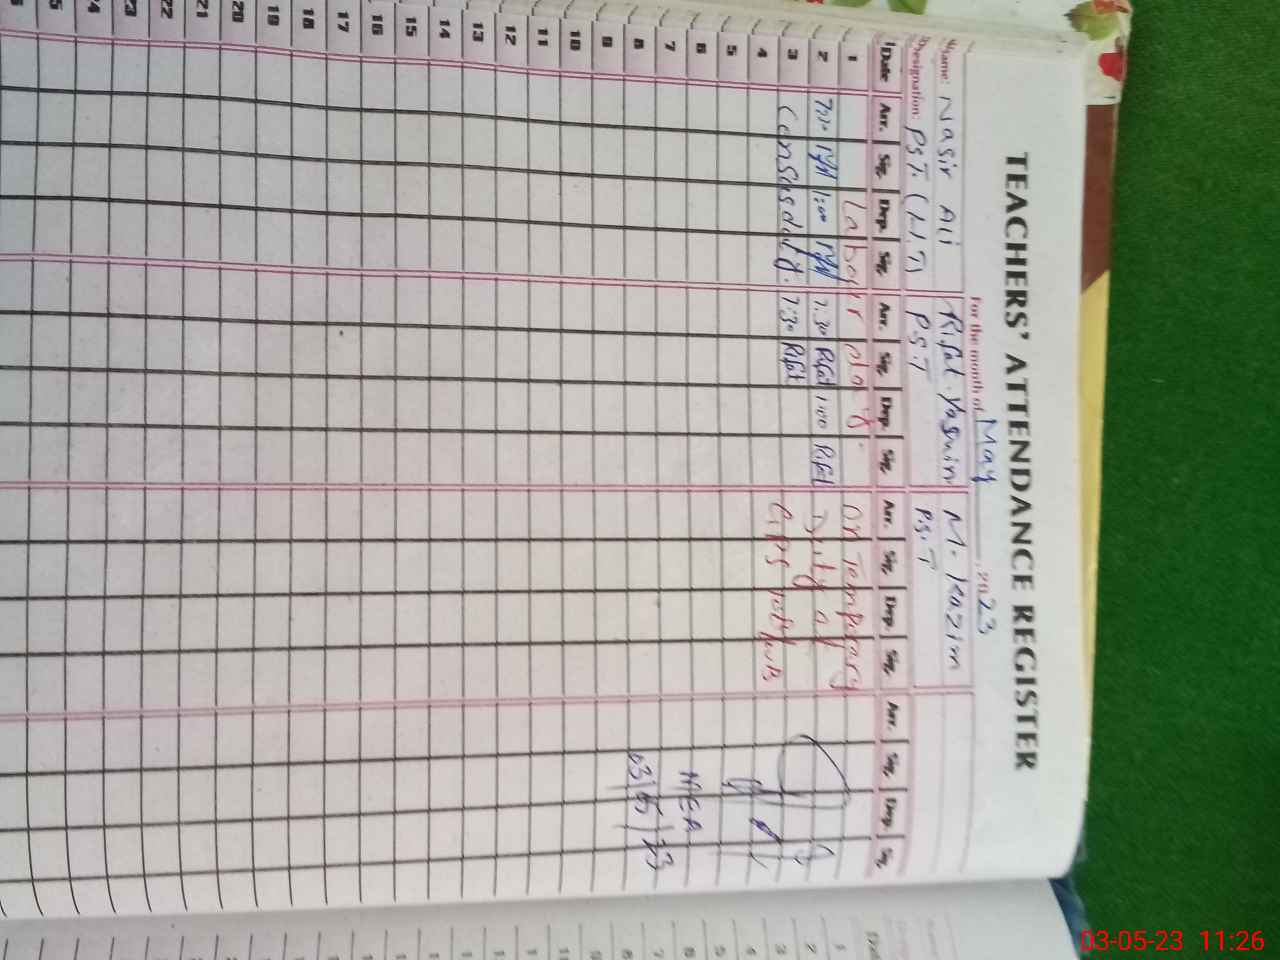 TEACHERS' ATTENDANCE REGISTER
For the month of May, 2023
Name: Nasir Ali Rifat Yasmin M. Kazim
Designation: PST (H.T) P.S.T P.S.T
Date Arr. Sig. Dep. Sig. Arr. Sig. Dep. Sig. Arr. Sig. Dep. Sig. Arr. Sig. Dep. Sig.
1 Labour day. On Temporary
2 7:30 1:00 7:30 Rifat 1:00 Rifat Duty at
3 Censas duty. 7:30 Rifat GPS
4
5
6 MEA
7
8 03/05/23
9
10
11
12
13
14
15
16
17
18
19
20
21
22
23
24
03-05-23 11:26